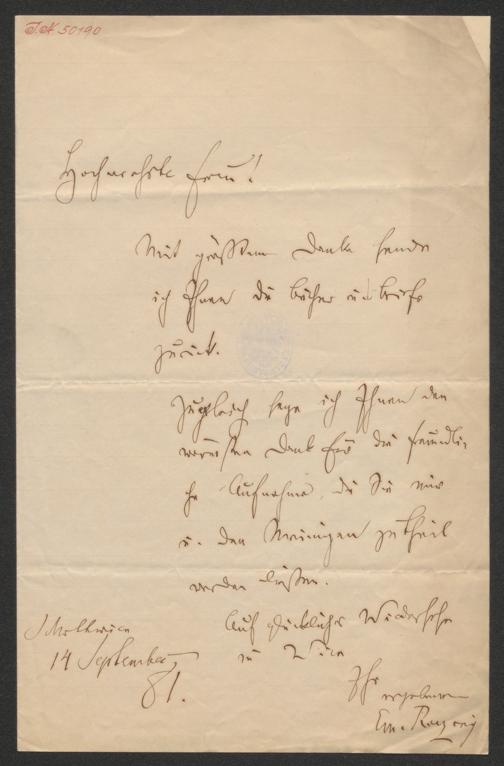 I.N. 50190
Hochverehrte Frau!
Mit größtem Danke sende
ich Ihnen die Bücher u. Briefe
zurück.
Zugleich sage ich Ihnen den
wärmsten Dank für die freundli-
che Aufnahme, die Sie mir
u. den Meinigen zutheil
werden ließen.
Auf glückliches Wiedersehn
in Wien
Ihr
ergebener
Em. Ranzoni
14 September
81.